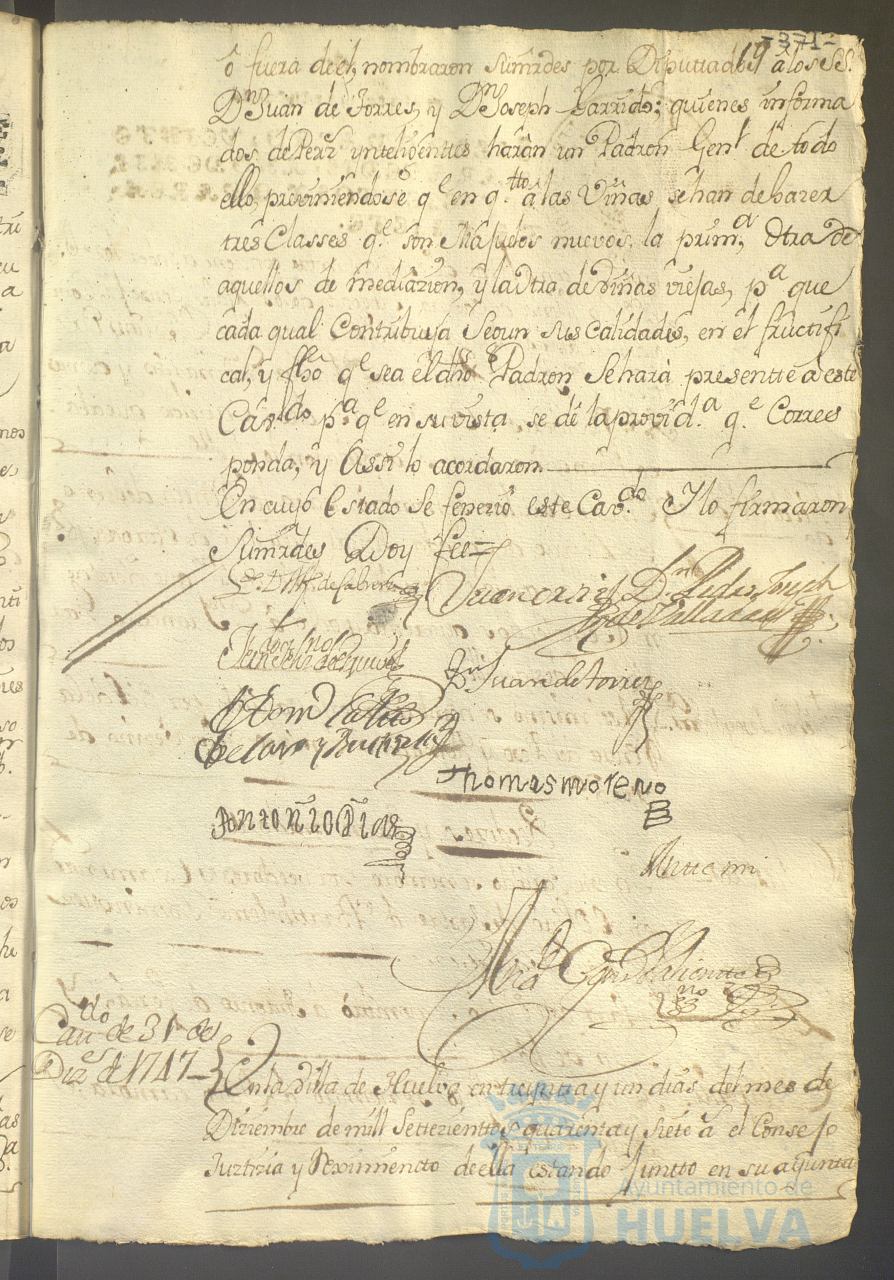 -371-
19
ô fuera de el, nombraron sus mrdes por Diputtados a los SS.
Dn Juan de Torres, y Dn Joseph Garrido; quienes informa
dos de Perz ynteligenttes harân un Padron Genl de todo
ello, previniendose qe en qtto â las Viñas se han de hazer
tres Classes qe son Majuelos nuevos, la prima, Otra de
aquellos de mediazion, y la Otra de Viñas viejas, pa que
cada qual Contribuya segun sus calidades, en el fructifi
cal, y fho qe sea el dho Padron se hara presentte a este
Cavdo pa qe en su vista se dé la provida qe Corres
ponda, y Assi lo acordaron
En cuyo Estado se fenezio este Cavdo Y lo firmaron
sus mrdes Doy fee=
Dn Juan de Torres
Thomas moreno
Antonio Dias
Antte mi
Cavdo de 31 de
Dizre de 1747
En la Villa de Huelva en treinta y un dias del mes de
Diziembre de mill Settezienttos quarenta y siete as el Consejo
Justizia y Reximiento de ella estando Juntto en su ayunta
Ayuntamiento de
HUELVA